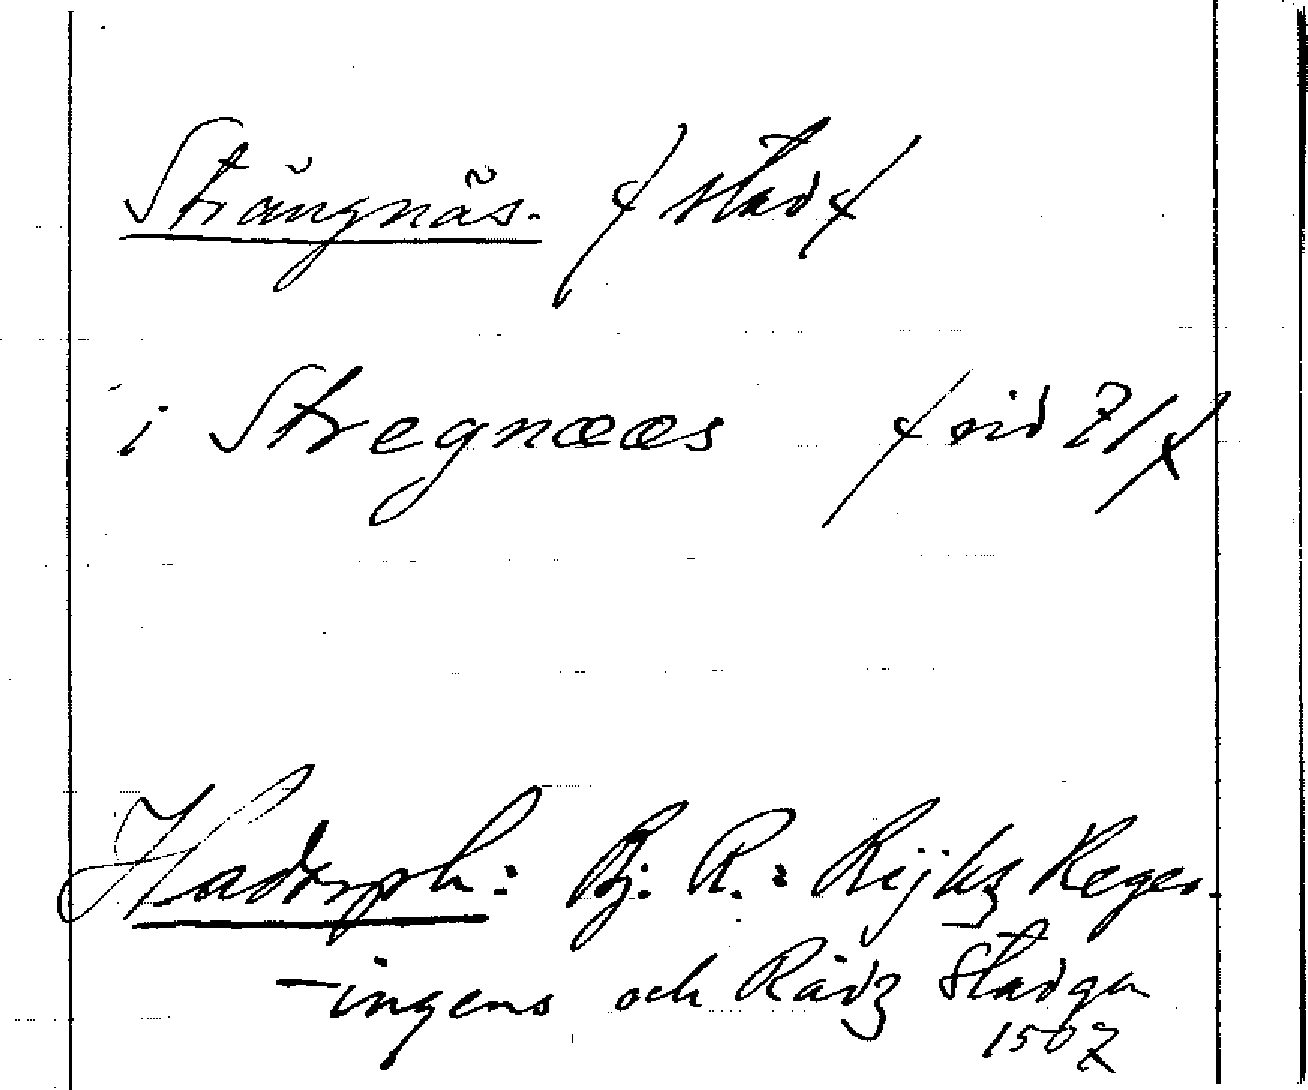 Strängnäs. / stad /
i Stregnææs / sid 71 /
Hadorph: Bj. R.: Rijkz Reger-
-ingens och Rådz Stadgar
1507